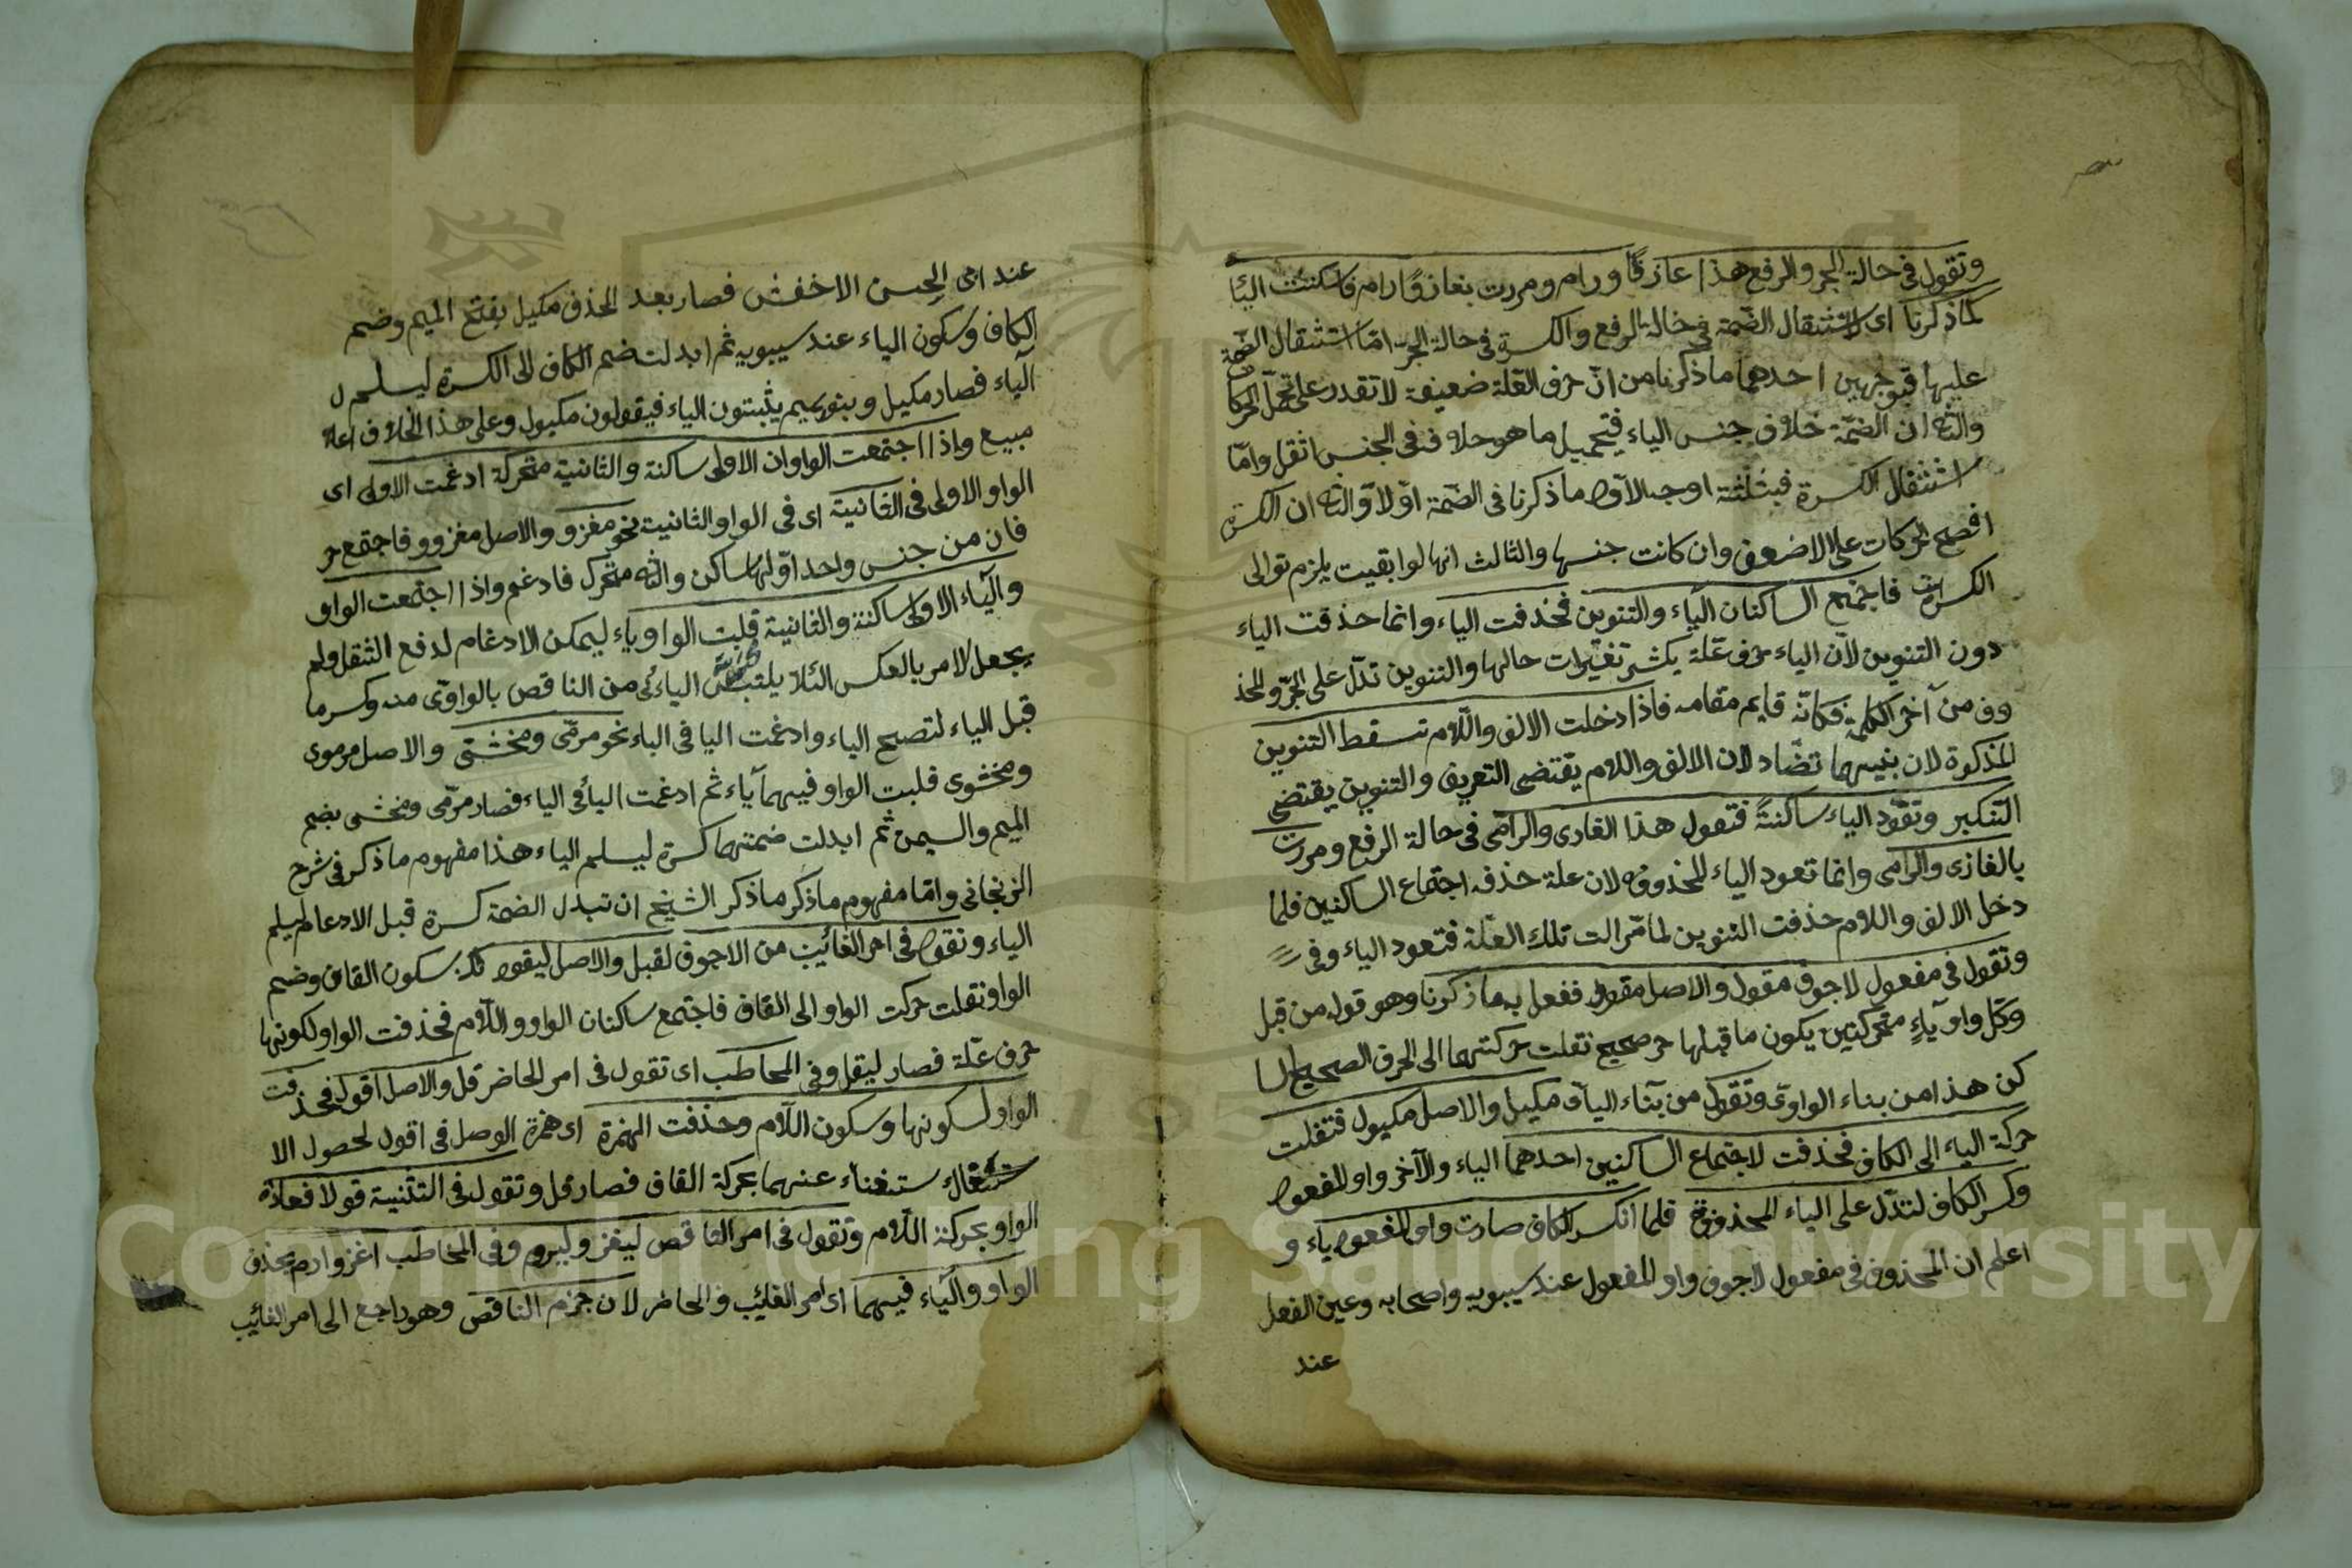 وتقول فى حالة الجر والرفع هذا غاز ورام ومررت بغاز ورام فاسكنت اليا
كما ذكرنا اى لاستثقال الضمة فى حالة الرفع والكسرة فى حالة الجر اما استثقال الضمة
عليها فبوجهين احدهما ما ذكرنا من ان حرف العلة ضعيفة لا تقدر على تحمل الحركا
والثا ان الضمة خلاف جنس الياء فتحميل ما هو خلاف فى الجنس اثقل واما
استثقال الكسرة فبثلثة اوجه الاول ما ذكرنا فى الضمة اولا والثا ان الكسرة
افصح الحركات على الاضعف وان كانت جنسها والثالث انها لو ابقيت يلزم توالى
الكسرات فاجتمع الساكنان الياء والتنوين فحذفت الياء وانما حذفت الياء
دون التنوين لان الياء حرف علة يكثر تغيرات حالها والتنوين تدل على الجر والمحذ
وف من آخر الكلمة فكانه قايم مقامه فاذا دخلت الالف واللام تسقط التنوين
المذكورة لان بنيهما تضاد لان الالف واللام يقتضى التعريف والتنوين يقتضى
التنكير وتعود الياء ساكنة فتقول هذا الغازى والرامى فى حالة الرفع ومررت
بالغازى والرامى وانما تعود الياء المحذوفه لان علة حذفه اجتماع الساكنين فلما
دخل الالف واللام حذفت التنوين لما مرالت تلك العلة فتعود الياء وفى
وتقول فى مفعول لاجوف مقول والاصل مقوول ففعل به ما ذكرنا وهو قوله من قبل
وكل واو ياء متحركتين يكون ما قبلها حر صحيح نقلت حركتهما الى الحرف الصحيح السا
كن هذا من بناء الواوى وتقول من بناء اليائى مكيل والاصل مكيول فنقلت
حركة الياء الى الكاف فحذفت لاجتماع الساكنين احدهما الياء والآخر واو المفعول
وكسر الكاف لتدل على الياء المحذوفة فلما انكسر الكاف صارت واو المفعول ياء و
اعلم ان المحذوف فى مفعول لاجوف واو المفعول عند سيبويه واصحابه وعين الفعل
عند
عند ابى الحسن الاخفش فصار بعد الحذف مكيل بفتح الميم وضم
الكاف وسكون الياء عند سيبويه ثم ابدلت ضم الكاف الى الكسرة ليسلم
الياء فصار مكيل وبنو تميم يثبتون الياء فيقولون مكيول وعلى هذا الخلاف اعلا
مبيع واذا اجتمعت الواوان الاولى ساكنة والثانية متحركة ادغمت الاولى اى
الواو الاولى فى الثانية اى فى الواو الثانية نحو مغزو والاصل مغزوو فاجتمع حر
فان من جنس واحد اولها ساكن والثا متحرك فادغم واذا اجتمعت الواو
والياء الاولى ساكنة والثانية قلبت الواو ياء ليمكن الادغام لدفع الثقل ولم
يجعل الامر بالعكس لئلا يلتبس اليائى من الناقص بالواوى منه وكسر ما
قبل الياء لتصح الياء وادغمت اليا فى الياء نحو مرمى ومخشى والاصل مرموى
ومخشوى قلبت الواو فيهما ياء ثم ادغمت اليا فى الياء فصار مرمى ومخشى بضم
الميم والسيمن ثم ابدلت ضمتهما كسرة ليسلم الياء هذا مفهوم ما ذكر فى شرح
الزنجانى واما مفهوم ما ذكر ما ذكر الشيخ ان تبدل الضمة كسرة قبل الادغام ليلم
الياء ونقول فى امر الغائب من الاجوف لقبل والاصل ليقول بسكون القاف وضم
الواو نقلت حركت الواو الى القاف فاجتمع ساكنان الواو واللام فحذفت الواو لكونها
حرف علة فصار ليقل وفى المخاطب اى تقول فى امر الحاضر قل والاصل اقول فحذفت
الواو لسكونها وسكون اللام وحذفت الهمزة اى همزة الوصل فى اقول لحصول الا
ستغناء عنهما بحركة القاف فصار قل وتقول فى التثنية قولا فعادة
الواو بحركة اللام وتقول فى امر الناقص ليغز وليروم وفى المخاطب اغز وارم بحذف
الواو والياء فيهما اى امر الغائب والحاضر لان جزم الناقص وهو راجع الى امر الغائب
Copyright © King Saud University